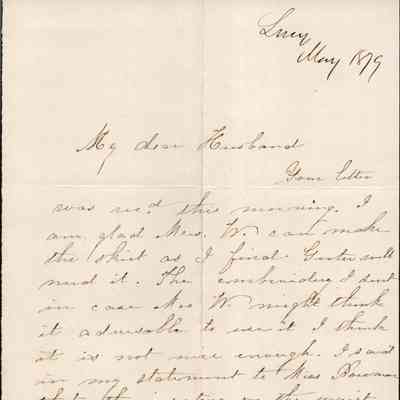 Lucy
May 1879
My dear Husband
Your letter
was rec.d this morning. I
am glad Mrs. W. can make
the skirt as I find will
need it. The embroidery I sent
in case Mrs W. might think
it advisable to use it I think
it is not nice enough. I said
in my statement to Miss Bowman
that the on the waist